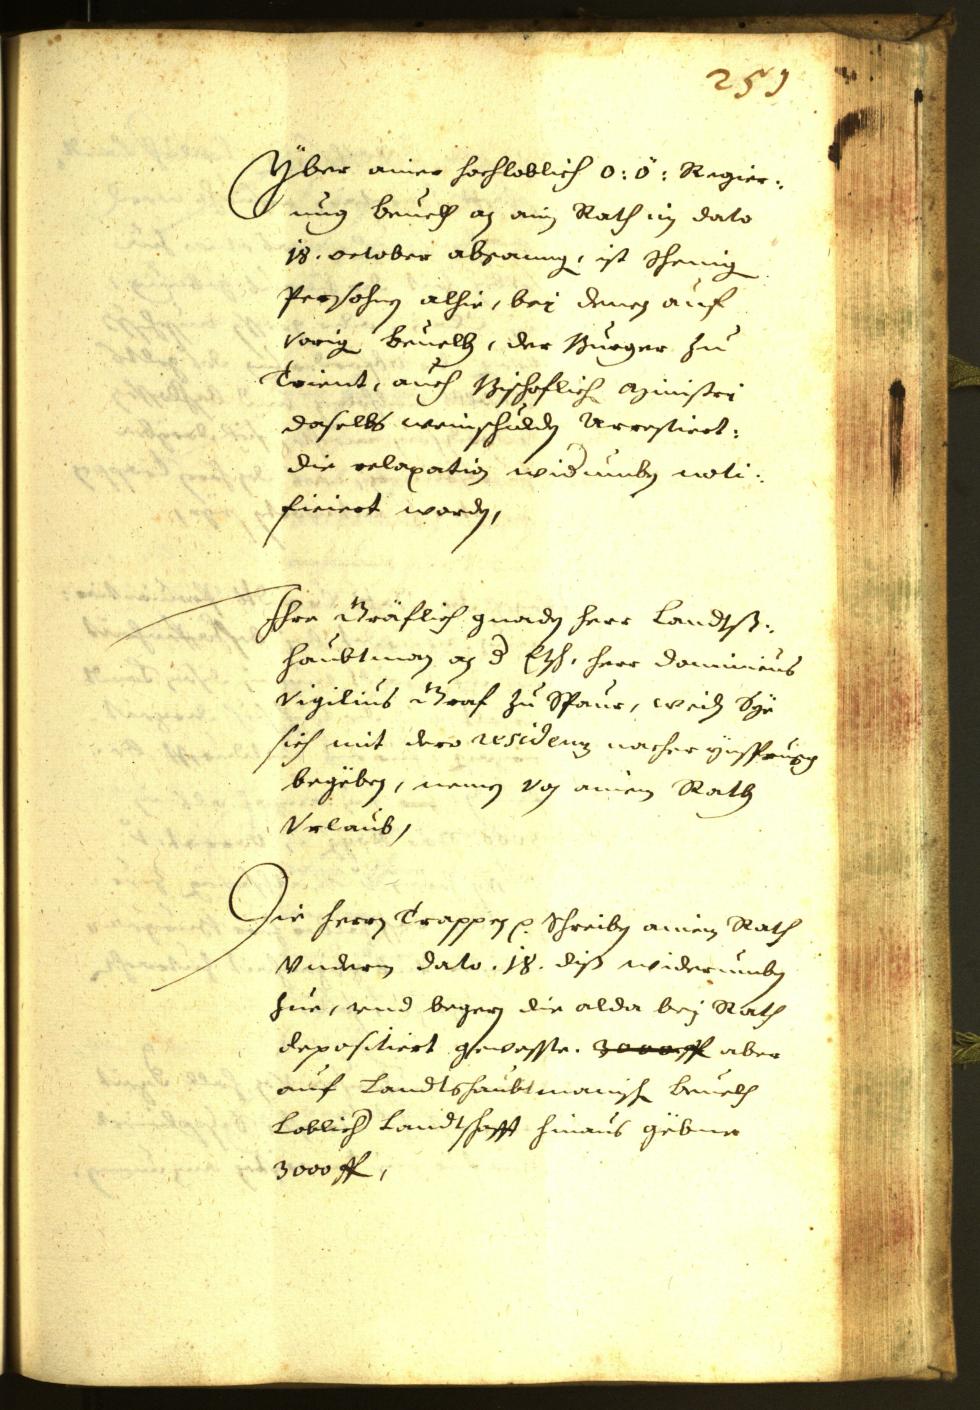 259
Yber ainer hochloblich o: ö: Regier:
ung beuelh an ain Rath in dato
18. october abganng, ist
Persohnen alhie, bei denen auf
vorig beuelh, der Burger zu
Trient, auch Bischoflich Ministri
daselbs weinschulden Arrestiert:
die relaxation widerumben noti:
ficiert worden,
Ihre Gräflich gnaden herr Landtß:
haubtman an d Etsh, herr Dominicus
Vigilius Graf zu Spaur, weiln Sye
sich mit dero residenz nacher ynsprugg
begëben, nemen von ainem Rath
Vrlaub,
Die herrn Trappen p. Schreiben ainem Rath
Vnderm dato .18. diß widerumben
zue, vnd begern die alda bei Rath
depositiert geweste. 3000 ff aber
auf Landtshaubtmanisch beuelh
Loblicher Landtschafft hinaus gëbne
3000 ff,